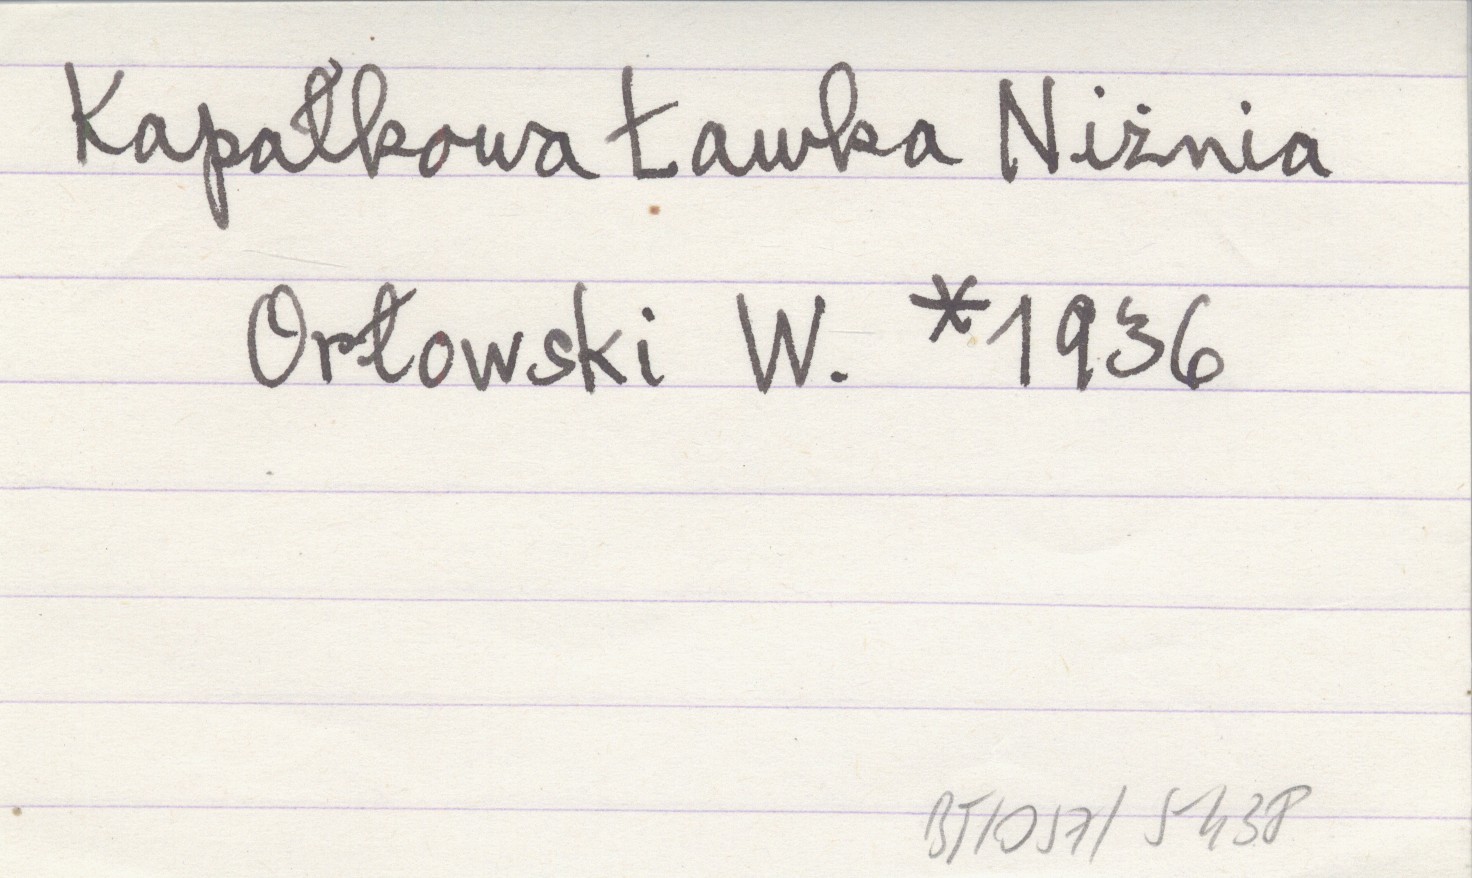 Kapałkowa Ławka Niżnia
Orłowski W. *1936
BT/057/ 5438